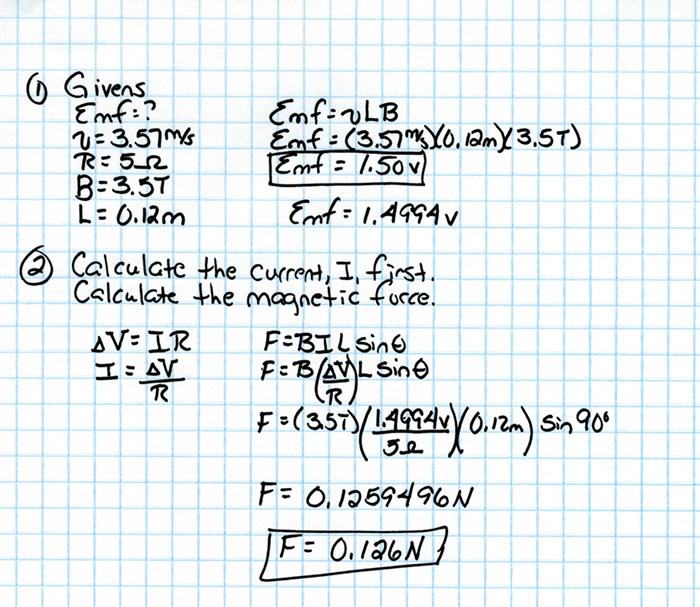 ① Givens
Emf=?
v=3.57m/s
R=5Ω
B=3.5T
L=0.12m
Emf=vLB
Emf=(3.57m/s)(0.12m)(3.5T)
Emf = 1.50v
Emf= 1.4994v
② Calculate the current, I, first.
Calculate the magnetic force.
ΔV=IR
I = ΔV/R
F=BILsinθ
F=B(ΔV/R)Lsinθ
F=(3.5T)(1.4994v/5Ω)(0.12m) sin90°
F= 0.1259496N
F= 0.126N